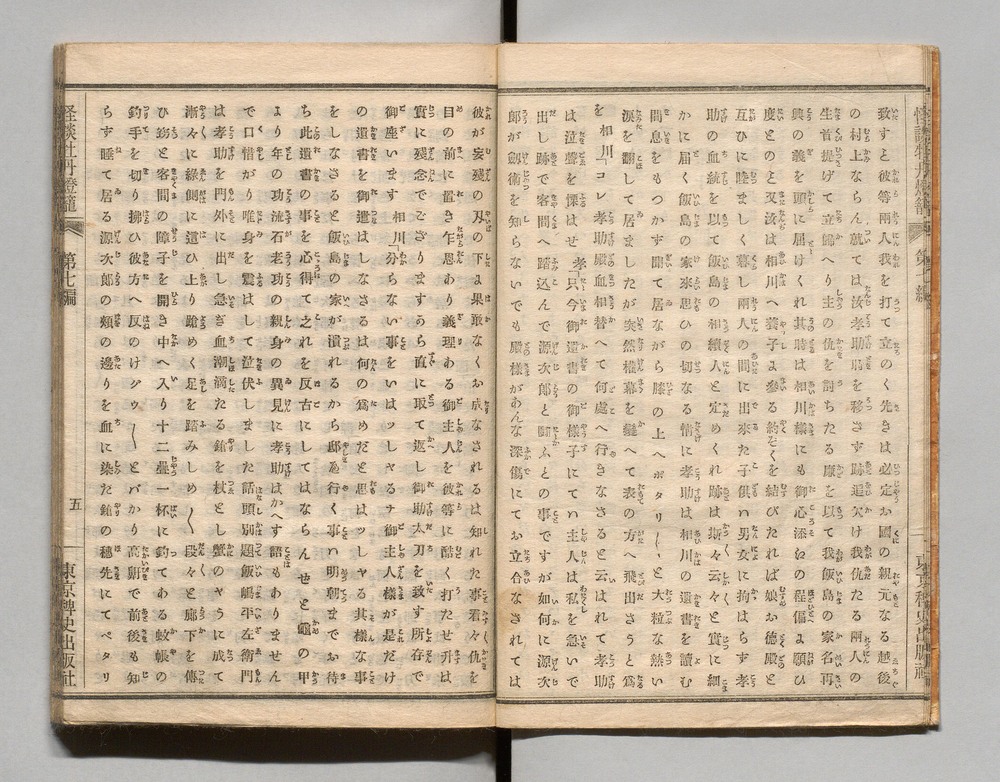 怪談牡丹燈籠 第七編 東京稗史出版社
致すと彼等兩人我を打て立のく先きは必定お國の親元なる越後
の村上ならん就ては汝孝助時を移さす跡追欠け我仇たる兩人の
生首提げて立歸へり主の仇を討ちたる廉を以て我飯島の家名再
興の義を頭に届けくれ其時は相川樣にも御心添ゐの程偏よ願ひ
度とのと又汝は相川へ養子よ參る約そくを結びたれば娘お徳殿と
互ひに睦ましく暮し兩人の間に出來た子供い男女に拘はらす孝
助の血統を以て飯島の相續人と定めくれ跡は斯々云々と實に細
かに届く飯島の家來思ひの切なる情に孝助は相川の遺書を讀む
間息をもつかず聞て居ながら膝の上へポタリ〳〵と大粒な熱い
涙を翻して居ましたが突然權幕を變へて表の方へ飛出さうと爲
を 相川「コレ孝助殿血相替へて何處へ行きなさると云はれて孝助
は泣聲を慄はせ 孝「只今御遺書の御樣子にてい主人は私を急いで
出し跡で客間へ踏込んで源次郎と鬪ふとの事ですが如何に源次
郎が劔術を知らないでも殿樣があんな深傷にてお立合なされては
彼が妄殘の刃の下よ果敢なくお成なされるは知れた事看々仇を
目の前に置き乍恩あり義理ある御主人を彼等に酷く打たせ升は
實に殘念でござりますあら直に取て返し御助太刀を致す所存で
御座います 相川「分らない事をいはッしやるナ御主人樣が是だけ
の遺書を御遣はしなさるは何の爲めだと思はッシヤる其樣な事
をしなさると飯島の家が潰れるから邸へ行く事い明朝までお待
ち此遺書の事を心得て之れを反古にしてはならんぜと龜の甲
より年の功流石老功の親身の異見に孝助はかへす詞もありません
で口惜がり唯身を震はして泣伏しました話頭別題飯島平左衛門
は孝助を門外に出し急ぎ血潮滴たる鎗を杖とし蟹のやうに成て
漸々に縁側に這ひ上り蹌めく足を踏みしめ〳〵段々と廊下を傳
ひ ひと客間の障子を開き中へ入り十二疊一杯に釣てある蚊帳の
釣手を切り拂ひ彼方へ反のけグウ〳〵とバかり高鼾で前後も知
らす睡て居る源次郎の頬の邊りを血に染た鎗の穗先にてペタリ
怪談牡丹燈籠 第七編 五 東京稗史出版社